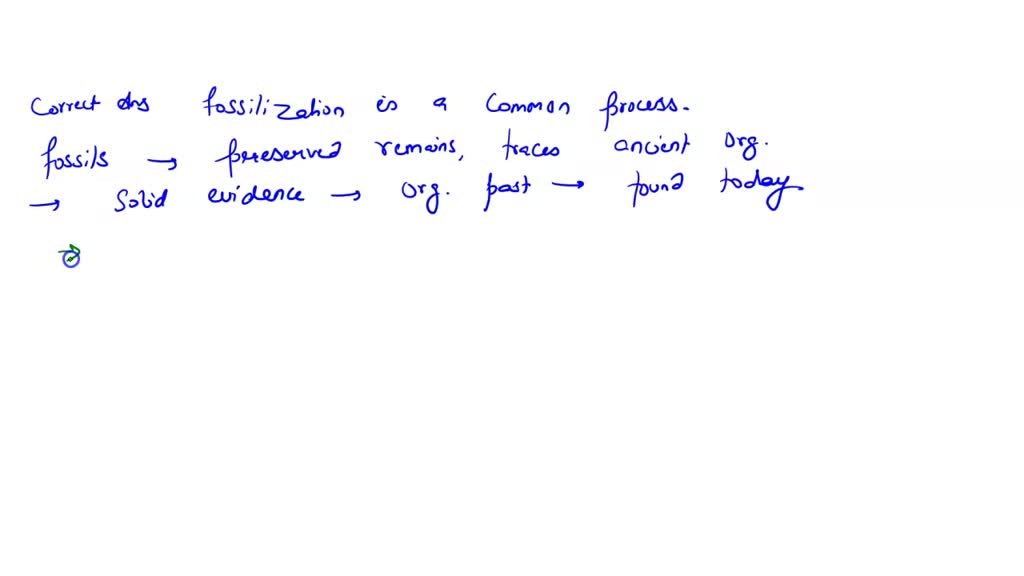 Correct ans fossilization is a common process.
fossils → preserved remains, traces ancient org.
→ solid evidence → org. past → found today
→